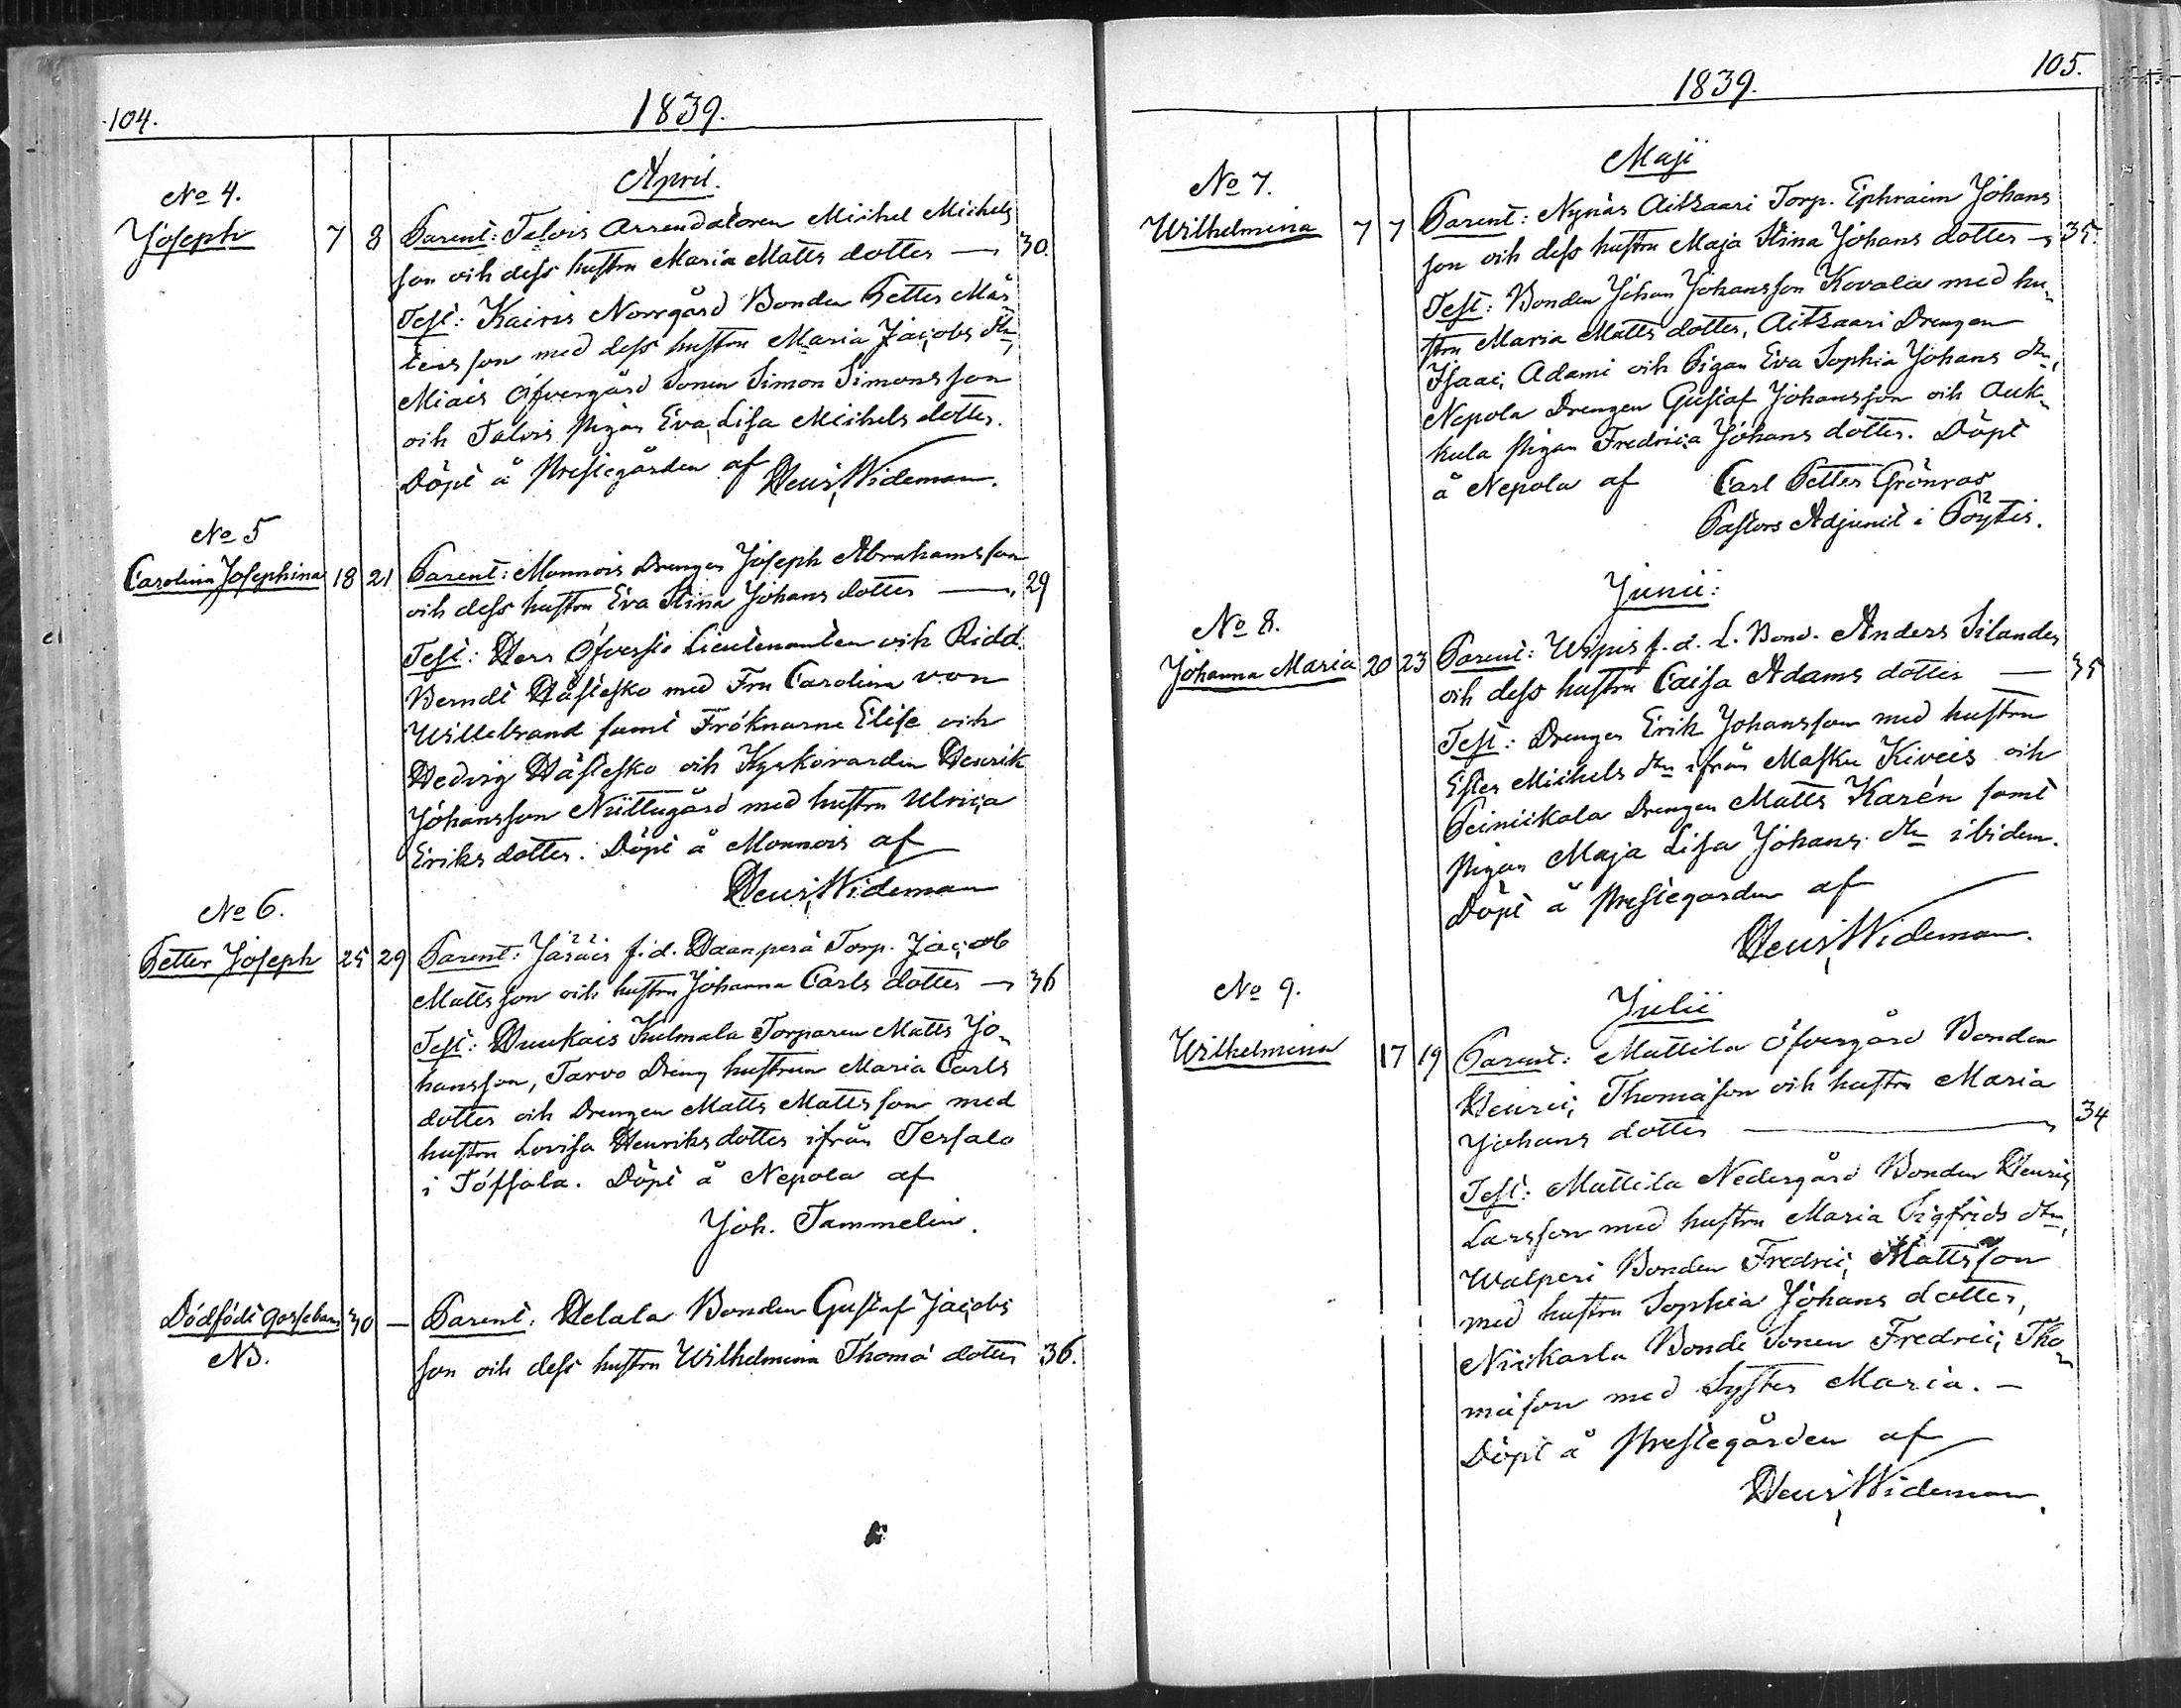 104.
1839.
April.
No 4.
Joseph 7 8 Parent: Talois Arrendatoren Michel Michels
son och dess hustru Maria Matts dotter — 30.
Test: Kairis Norrgård Bonden Petter Mår
tensson med dess hustru Maria Jacobs dtr,
Miais Öfvergård Sonen Simon Simonsson
och Talois pigan Eva Lisa Michels dotter.
Döpt å Prestegården af Henr. Wideman.
No 5
Carolina Josephina 18 21 Parent: Monnois Drengen Joseph Abrahamsson
och dess hustru Eva Stina Johans dotter — 29
Test: Herr Öfverste Lieutenanten och Ridd.
Berndt Hästesko med Fru Carolina von
Willebrand samt Fröknarne Elise och
Hedvig Hästesko och Kyrkovärden Henrik
Johansson Niittugård med hustru Ulrica
Eriks dotter. Döpt å Monnois af
Henr. Wideman
No 6.
Petter Joseph 25 29 Parent: Jäsäis f.d. Haanperä Torp. Jacob
Mattsson och hustru Johanna Carls dotter — 36
Test: Huukais Kulmala Torparen Matts Jo-
hansson, Tarvo Dreng hustrun Maria Carls
dotter och Drengen Matts Mattsson med
hustru Lovisa Henriks dotter ifrån Tersalo
i Töfsala. Döpt å Nepola af
Joh. Tammelin.
Dödfödt gossebarn 30 — Parent: Helala Bonden Gustaf Jacobs
NB.
son och dess hustru Wilhelmina Thomæ dotter 36.
105.
1839.
Maji
No 7.
Wilhelmina 7 7 Parent: Nynäs Aitsaari Torp. Ephraim Johans
son och dess hustru Maja Stina Johans dotter — 35.
Test: Bonden Johan Johansson Kovala med hu-
stru Maria Matts dotter, Aitsaari Drengen
Isaac Adami och Pigan Eva Sophia Johans dtr,
Nepola Drengen Gustaf Johansson och Auk-
kula pigan Fredrica Johans dotter. Döpt
å Nepola af Carl Petter Grönroos
Pastors Adjunct i Pöytis.
Junii:
No 8.
Johanna Maria 20 23 Parent: Wipis f.d. L. Bond. Anders Silander
och dess hustru Caisa Adams dotter — 35
Test: Drengen Erik Johansson med hustru
Ester Michels dtr ifrån Masku Kiveis och
Peiniikala Drengen Matts Karén samt
pigan Maja Lisa Johans dtr ibidem.
Döpt å Prestegården af
Henr. Wideman.
Julii
No 9.
Wilhelmina 17 19 Parent: Mattila Öfvergård Bonden
Henric Thomasson och hustru Maria
Johans dotter — 34
Test: Mattila Nedergård Bonden Henric
Larsson med hustru Maria Sigfrids dtr,
Walperi Bonden Fredric Mattsson
med hustru Sophia Johans dotter,
Niikarla Bonde Sonen Fredric Tho-
mæson med Syster Maria. —
Döpt å Prestegården af
Henr. Wideman.